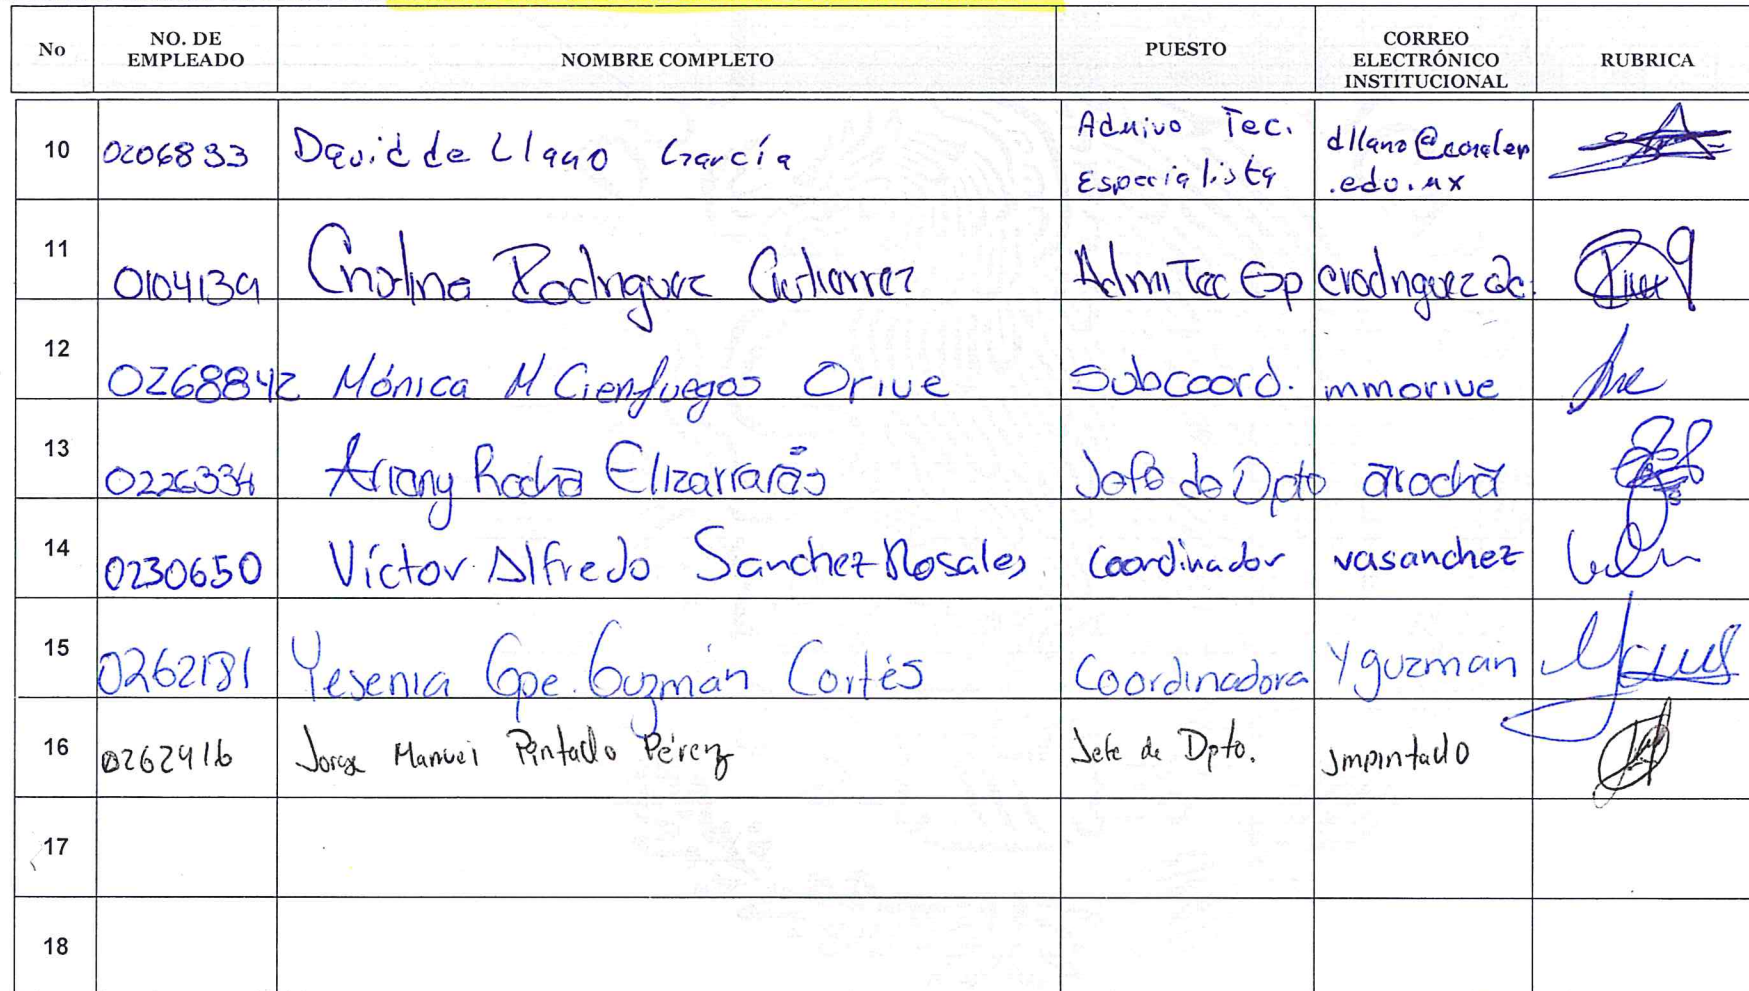 No NO. DE EMPLEADO NOMBRE COMPLETO PUESTO CORREO ELECTRÓNICO INSTITUCIONAL RUBRICA
10 0206833 David de Llano García Admivo Tec. Especialista dllano@conalep.edu.mx
11 0104139 Cristina Rodriguez Gutierrez Admi Tec Esp crodriguez@c.
12 0268842 Mónica M Cienfuegos Orive Subcoord. mmorive
13 0226334 Ariany Rocha Elizarrarás Jefe de Dpto arocha
14 0230650 Víctor Alfredo Sanchez Rosales Coordinador vasanchez
15 0262181 Yesenia Gpe. Guzmán Cortés Coordinadora Yguzman
16 0262916 Jorge Manuel Pintado Pérez Jefe de Dpto. Jmpintado
17
18